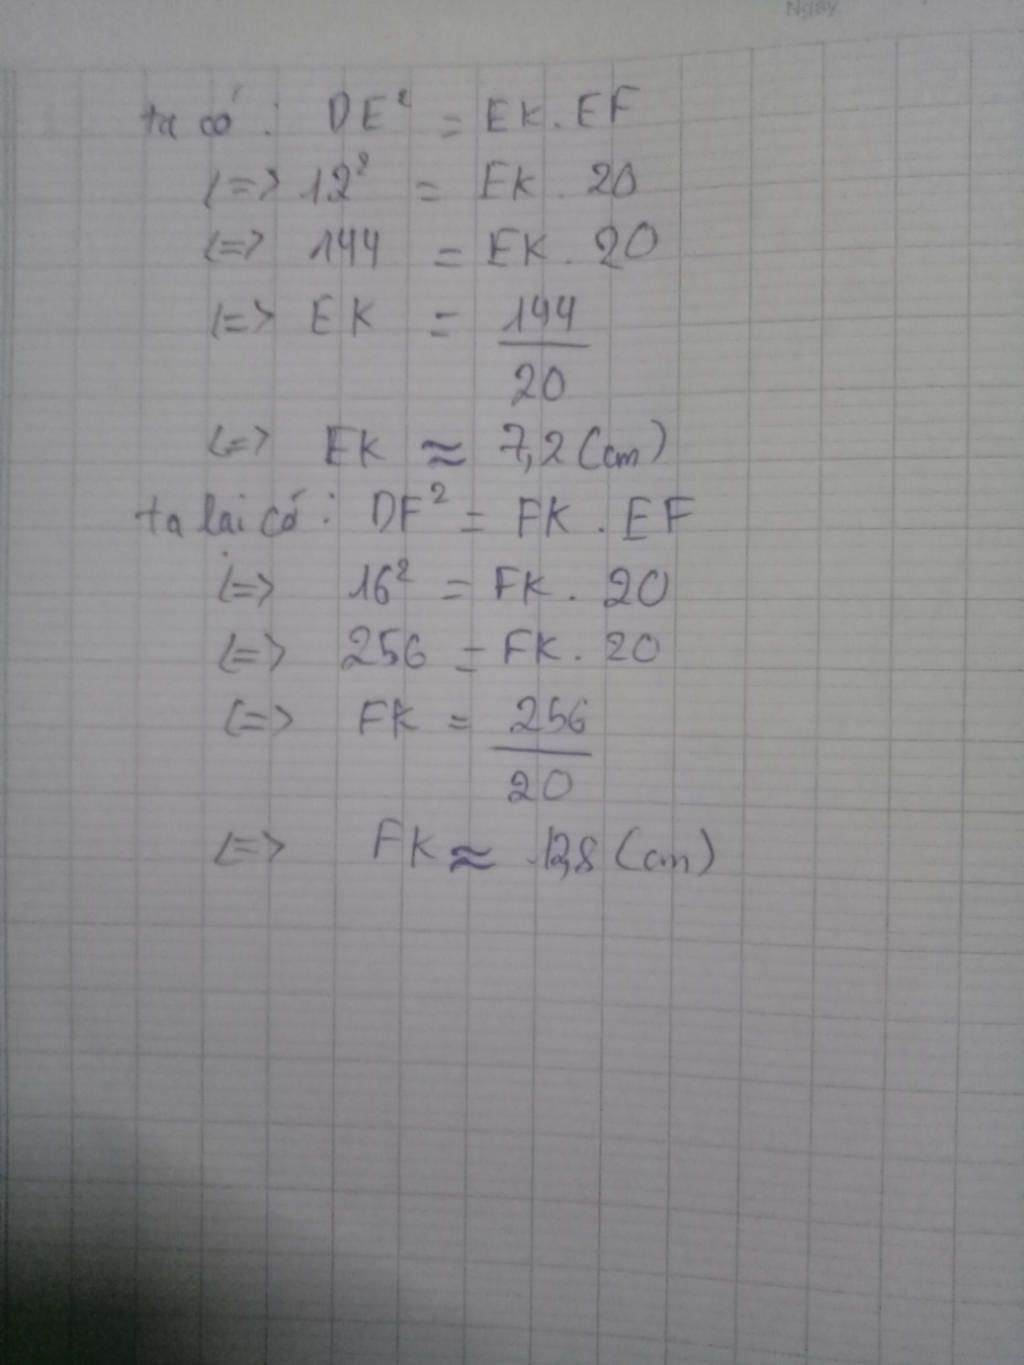 Ngày
ta có : DE² = EK . EF
<=> 12² = EK . 20
<=> 144 = EK . 20
<=> EK = 144
20
<=> EK ≈ 7,2 (cm)
ta lại có : DF² = FK . EF
<=> 16² = FK . 20
<=> 256 = FK . 20
<=> FK = 256
20
<=> FK ≈ 12,8 (cm)